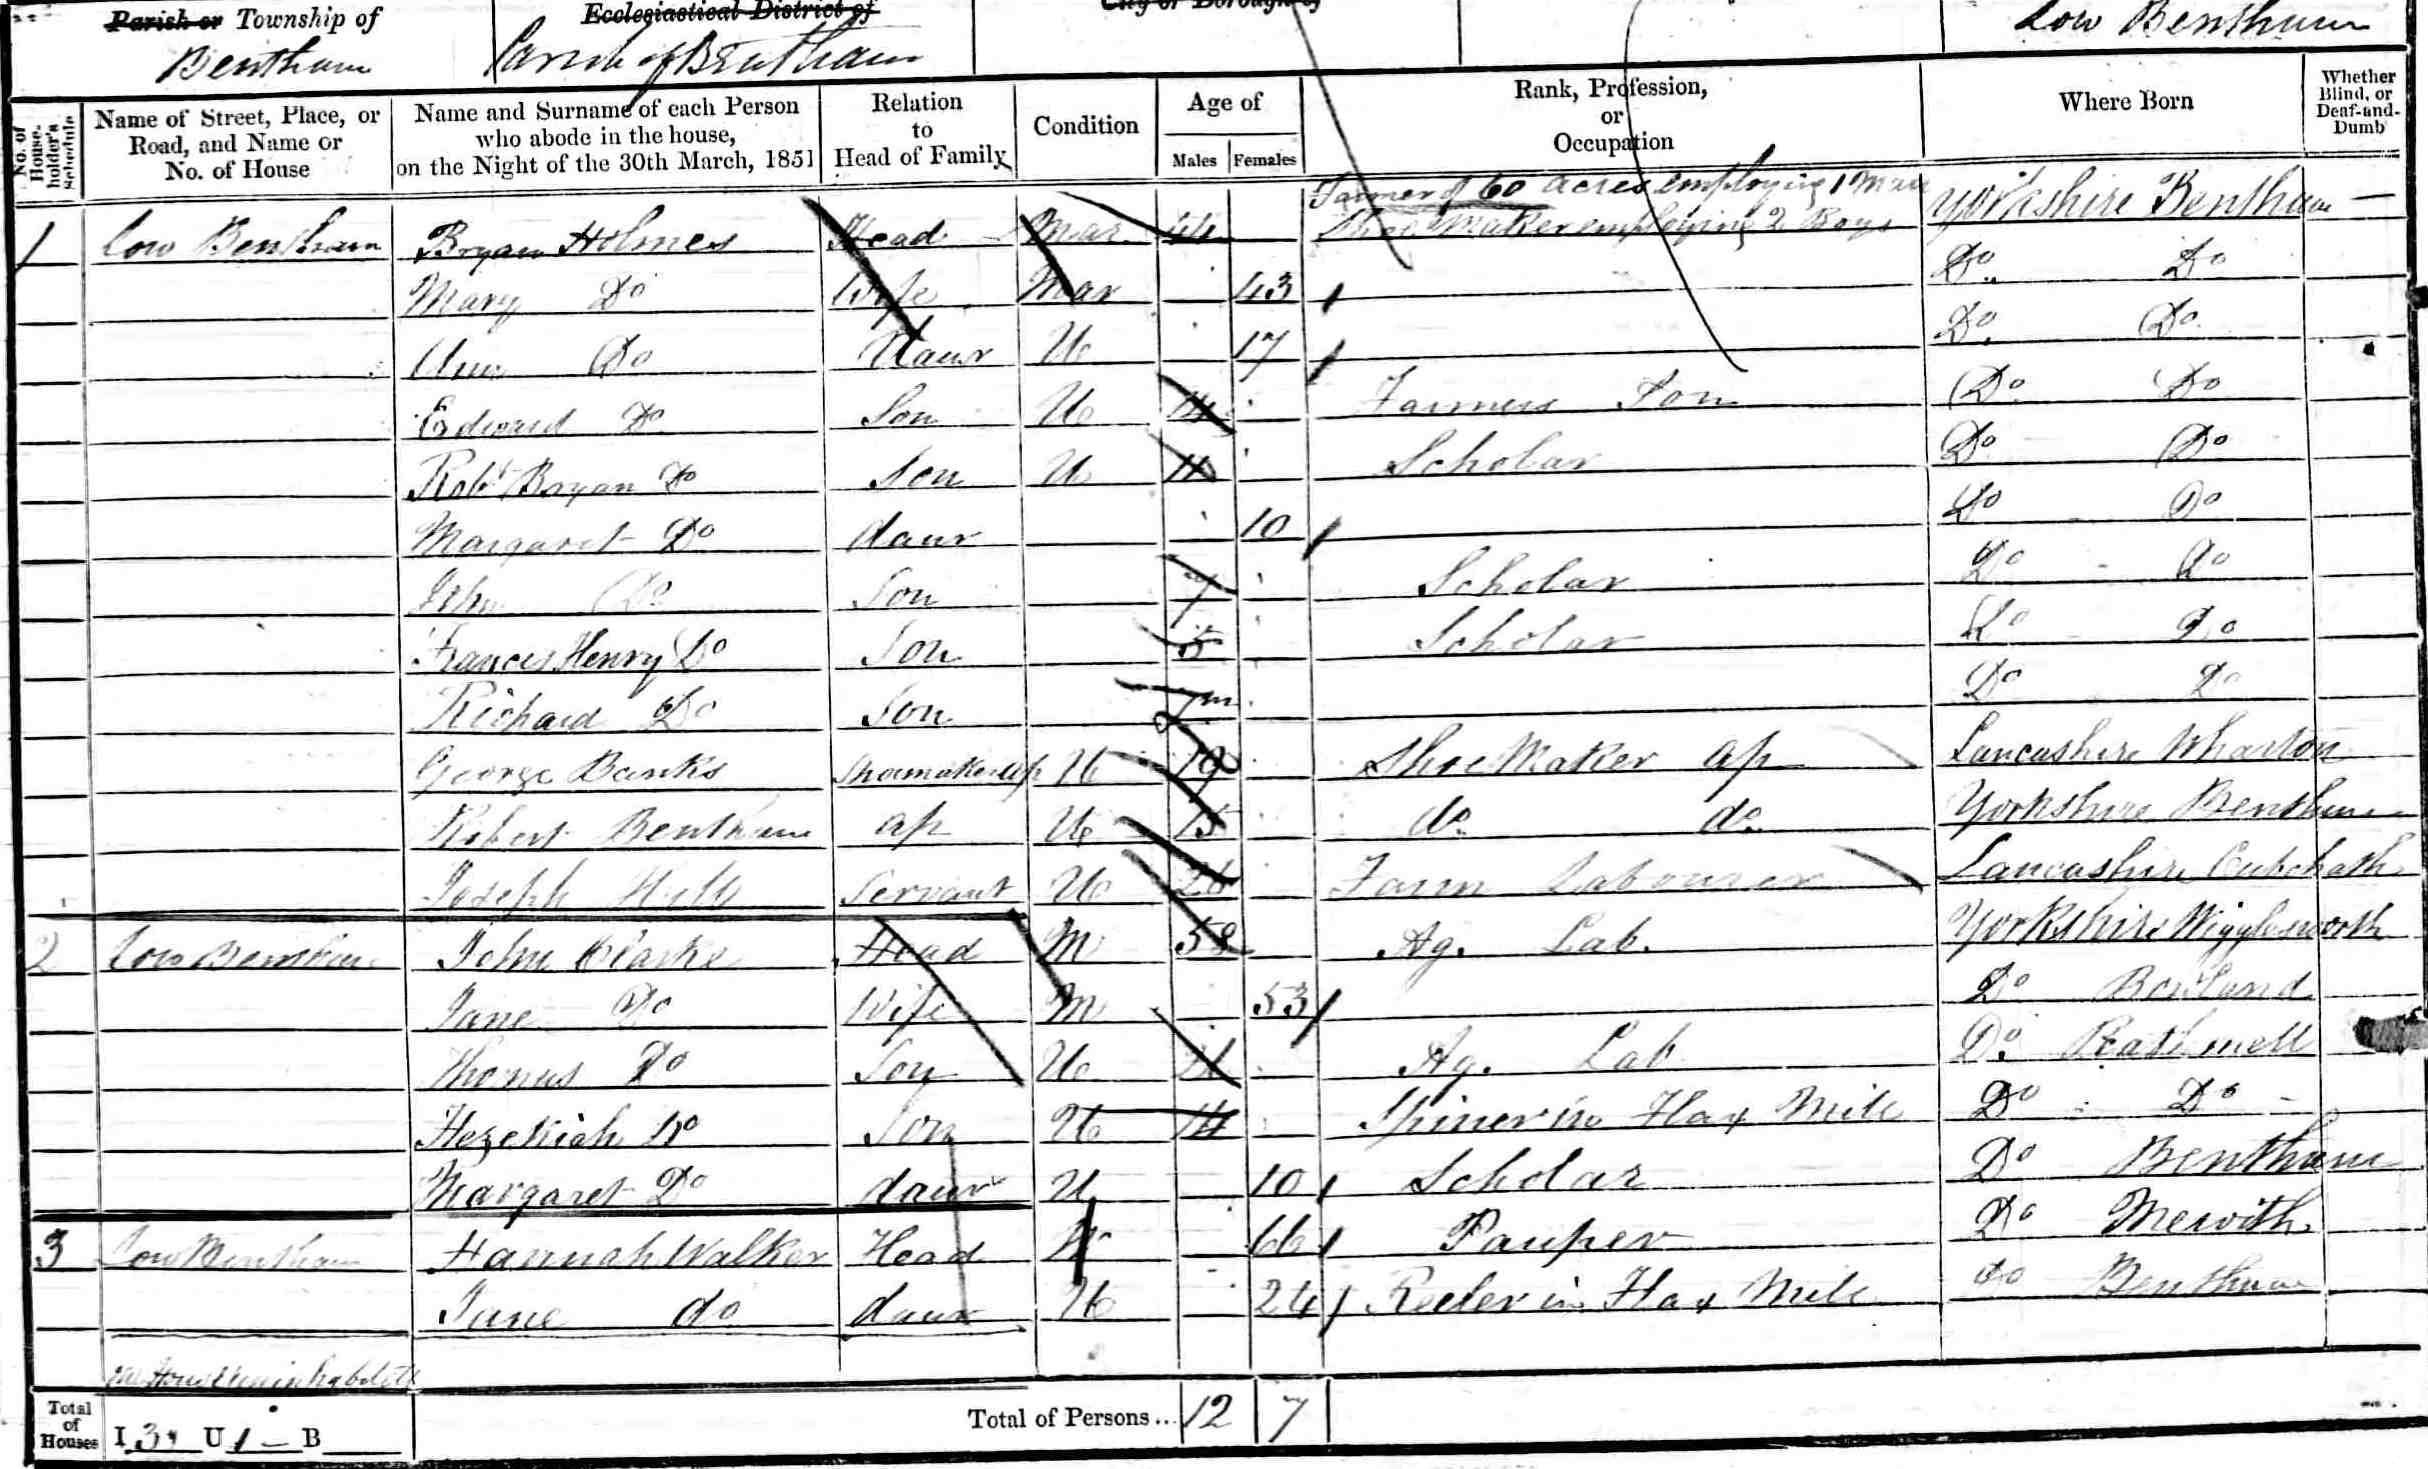 Parish or Township of Ecclesiastical District of City or Borough of
Bentham Parish of Bentham Low Bentham
No. of House-holder's Schedule Name of Street, Place, or Road, and Name or No. of House Name and Surname of each Person who abode in the house, on the Night of the 30th March, 1851 Relation to Head of Family Condition Age of Males Females Rank, Profession, or Occupation Where Born Whether Blind, or Deaf-and-Dumb
Farmer of 60 acres employing 1 Man
1 Low Bentham Bryan Holmes Head Mar 44 Shoe Maker employing 2 Boys Yorkshire Bentham
Mary Do Wife Mar 43 Do Do
Ann Do Daur U 17 Do Do
Edward Do Son U 14 Farmers Son Do Do
Robt Bryan Do Son U 11 Scholar Do Do
Margaret Do daur 10 Do Do
John Do Son 7 Scholar Do Do
Frances Henry Do Son 5 Scholar Do Do
Richard Do Son 7m Do Do
George Banks Shoemaker ap U 19 Shoe Maker ap Lancashire Wharton
Robert Bentham ap U 15 do do Yorkshire Bentham
Joseph Hill Servant U 26 Farm Labourer Lancashire
2 Low Bentham John Clarke Head M 58 Ag. Lab. Yorkshire Wigglesworth
Jane Do Wife M 53 Do Bowland
Thomas Do Son U 21 Ag. Lab Do Rathmell
Hezekiah Do Son U 14 Spiner in Flax Mill Do Do
Margaret Do daur U 10 Scholar Do Bentham
3 Low Bentham Hannah Walker Head W 66 Pauper Do Mewith
Jane do daur U 24 Reeler in Flax Mill do Bentham
one House uninhabited
Total of Houses I 3 U 1 B Total of Persons... 12 7